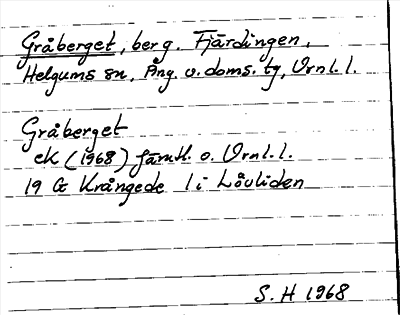 Gråberget, berg. Fjärdingen,
Helgums sn, Ång. v. doms. tg, Vrnl. l.
Gråberget
ek (1968) Jämtl. o. Vrnl. l.
19 G Krångede 1 i Lövliden
S. H 1968